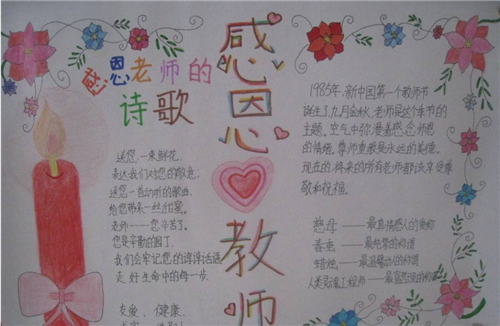 感恩老师的
诗歌
送您一束鲜花,
表达我们对您的敬意,
送您一首动听的歌曲,
给您带来一丝甜蜜。
老师——您辛苦了。
您是辛勤的园丁,
我们会牢记您的谆谆话语
走好生命中的每一步。
友爱、健康、
感恩
教师
1985年,新中国第一个教师节
诞生了,九月金秋,老师是这个季节的
主题。空气中弥漫着感念师恩
的情怀。尊师重教是永远的美德。
现在的,将来的所有老师都该享受尊
敬和祝福。
慈母——最真情感人的称呼
蚕蚕——最纯挚的称谓
蜡烛——最温馨动人的称谓
人类灵魂工程师——